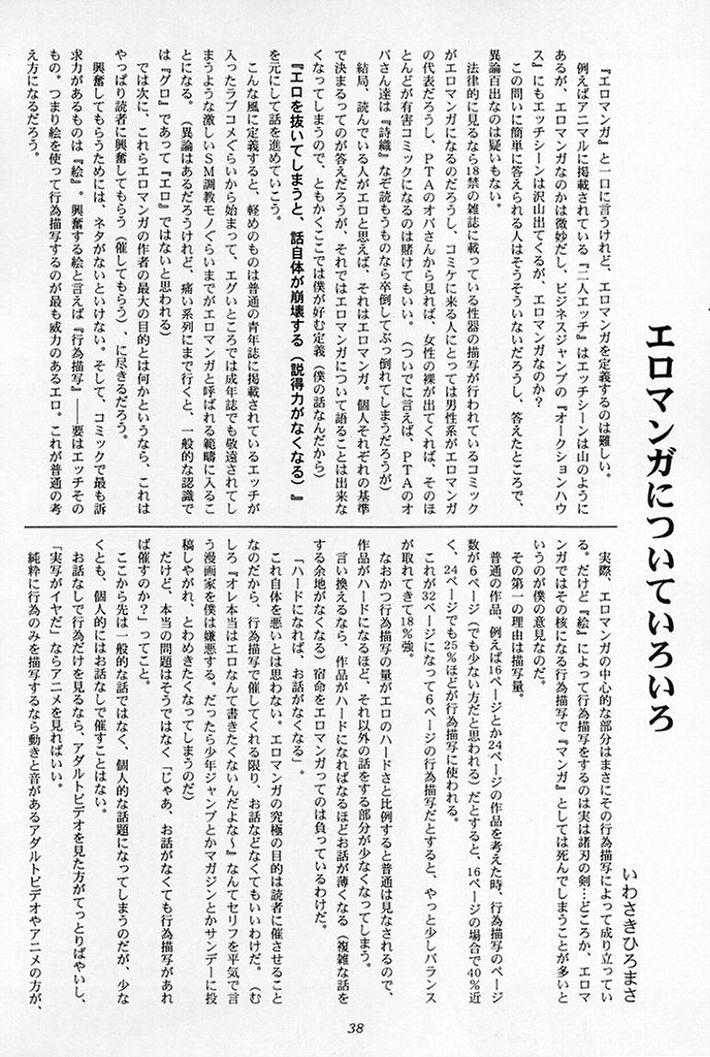 エロマンガについていろいろ
いわさきひろまさ
『エロマンガ』と一口に言うけれど、エロマンガを定義するのは難しい。
例えばアニマルに掲載されている『二人エッチ』はエッチシーンは山のように
あるが、エロマンガなのかは微妙だし、ビジネスジャンプの『オークションハウ
ス』にもエッチシーンは沢山出てくるが、エロマンガなのか?
この問いに簡単に答えられる人はそうそういないだろうし、答えたところで、
異論百出なのは疑いもない。
法律的に見るなら18禁の雑誌に載っている性器の描写が行われているコミック
がエロマンガになるのだろうし、コミケに来る人にとっては男性系がエロマンガ
の代表だろうし、PTAのオバさんから見れば、女性の裸が出てくれば、そのほ
とんどが有害コミックになるのは賭けてもいい。(ついでに言えば、PTAのオ
バさん達は『詩織』なぞ読もうものなら卒倒してぶっ倒れてしまうだろうが)
結局、読んでいる人がエロと思えば、それはエロマンガ。個人それぞれの基準
で決まるってのが答えだろうが、それではエロマンガについて語ることは出来な
くなってしまうので、ともかくここでは僕が好む定義(僕の話なんだから)
『エロを抜いてしまうと、話自体が崩壊する(説得力がなくなる)』
を元にして話を進めていこう。
こんな風に定義すると、軽めのものは普通の青年誌に掲載されているエッチが
入ったラブコメぐらいから始まって、エグいところでは成年誌でも敬遠されてし
まうような激しいSM調教モノぐらいまでがエロマンガと呼ばれる範疇に入るこ
とになる。(異論はあるだろうけれど、痛い系列にまで行くと、一般的な認識で
は『グロ』であって『エロ』ではないと思われる)
では次に、これらエロマンガの作者の最大の目的とは何かというなら、これは
やっぱり読者に興奮してもらう(催してもらう)、に尽きるだろう。
興奮してもらうためには、ネタがないといけない。そして、コミックで最も訴
求力があるものは『絵』。興奮する絵と言えば『行為描写』——要はエッチその
もの。つまり絵を使って行為描写するのが最も威力のあるエロ。これが普通の考
え方になるだろう。
実際、エロマンガの中心的な部分はまさにその行為描写によって成り立ってい
る。だけど『絵』によって行為描写をするのは実は諸刃の剣…どころか、エロマ
ンガではその核になる行為描写で『マンガ』としては死んでしまうことが多いと
いうのが僕の意見なのだ。
その第一の理由は描写量。
普通の作品、例えば16ページとか24ページの作品を考えた時、行為描写のページ
数が6ページ(でも少ない方だと思われる)だとすると、16ページの場合で40%近
く、24ページでも25%ほどが行為描写に使われる。
これが32ページになって6ページの行為描写だとすると、やっと少しバランス
が取れてきて18%強。
なおかつ行為描写の量がエロのハードさと比例すると普通は見なされるので、
作品がハードになるほど、それ以外の話をする部分が少なくなってしまう。
言い換えるなら、作品がハードになればなるほどお話が薄くなる(複雑な話を
する余地がなくなる)宿命をエロマンガってのは負っているわけだ。
「ハードになれば、お話がなくなる」。
これ自体を悪いとは思わない。エロマンガの究極の目的は読者に催させること
なのだから、行為描写で催してくれる限り、お話などなくてもいいわけだ。(む
しろ『オレ本当はエロなんて書きたくないんだよな〜』なんてセリフを平気で言
う漫画家を僕は嫌悪する。だったら少年ジャンプとかマガジンとかサンデーに投
稿しやがれ、とわめきたくなってしまうのだ)
だけど、本当の問題はそうではなく「じゃあ、お話がなくても行為描写があれ
ば催すのか?」ってこと。
ここから先は一般的な話ではなく、個人的な話題になってしまうのだが、少な
くとも、個人的にはお話なしで催すことはない。
お話なしで行為だけを見るなら、アダルトビデオを見た方がてっとりばやいし、
「実写がイヤだ」ならアニメを見ればいい。
純粋に行為のみを描写するなら動きと音があるアダルトビデオやアニメの方が、
38